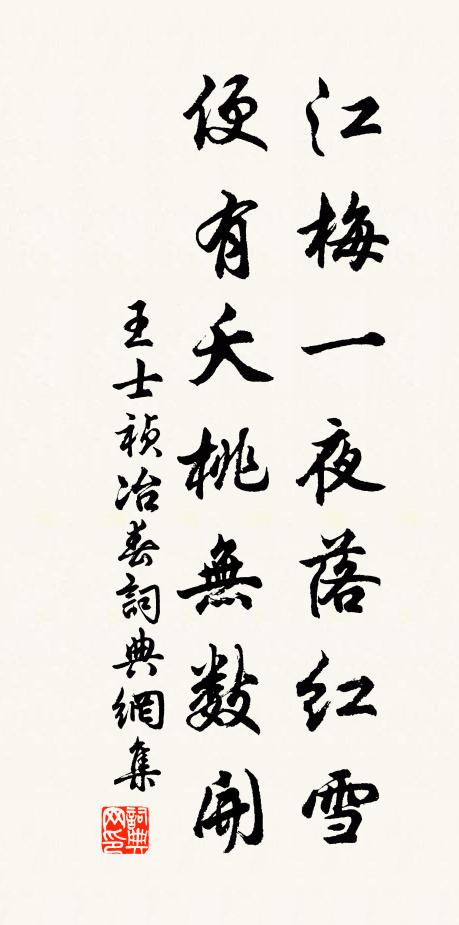 江梅一夜落红雪
便有夭桃無数開
王士祯冶春詞典網集
詞典網印